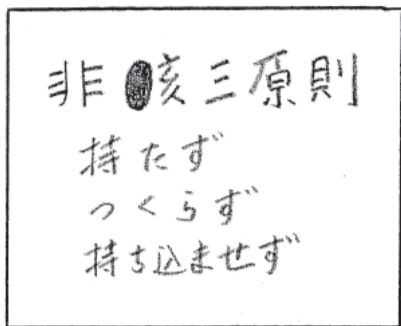 非●亥三原則
持たず
つくらず
持ち込ませず